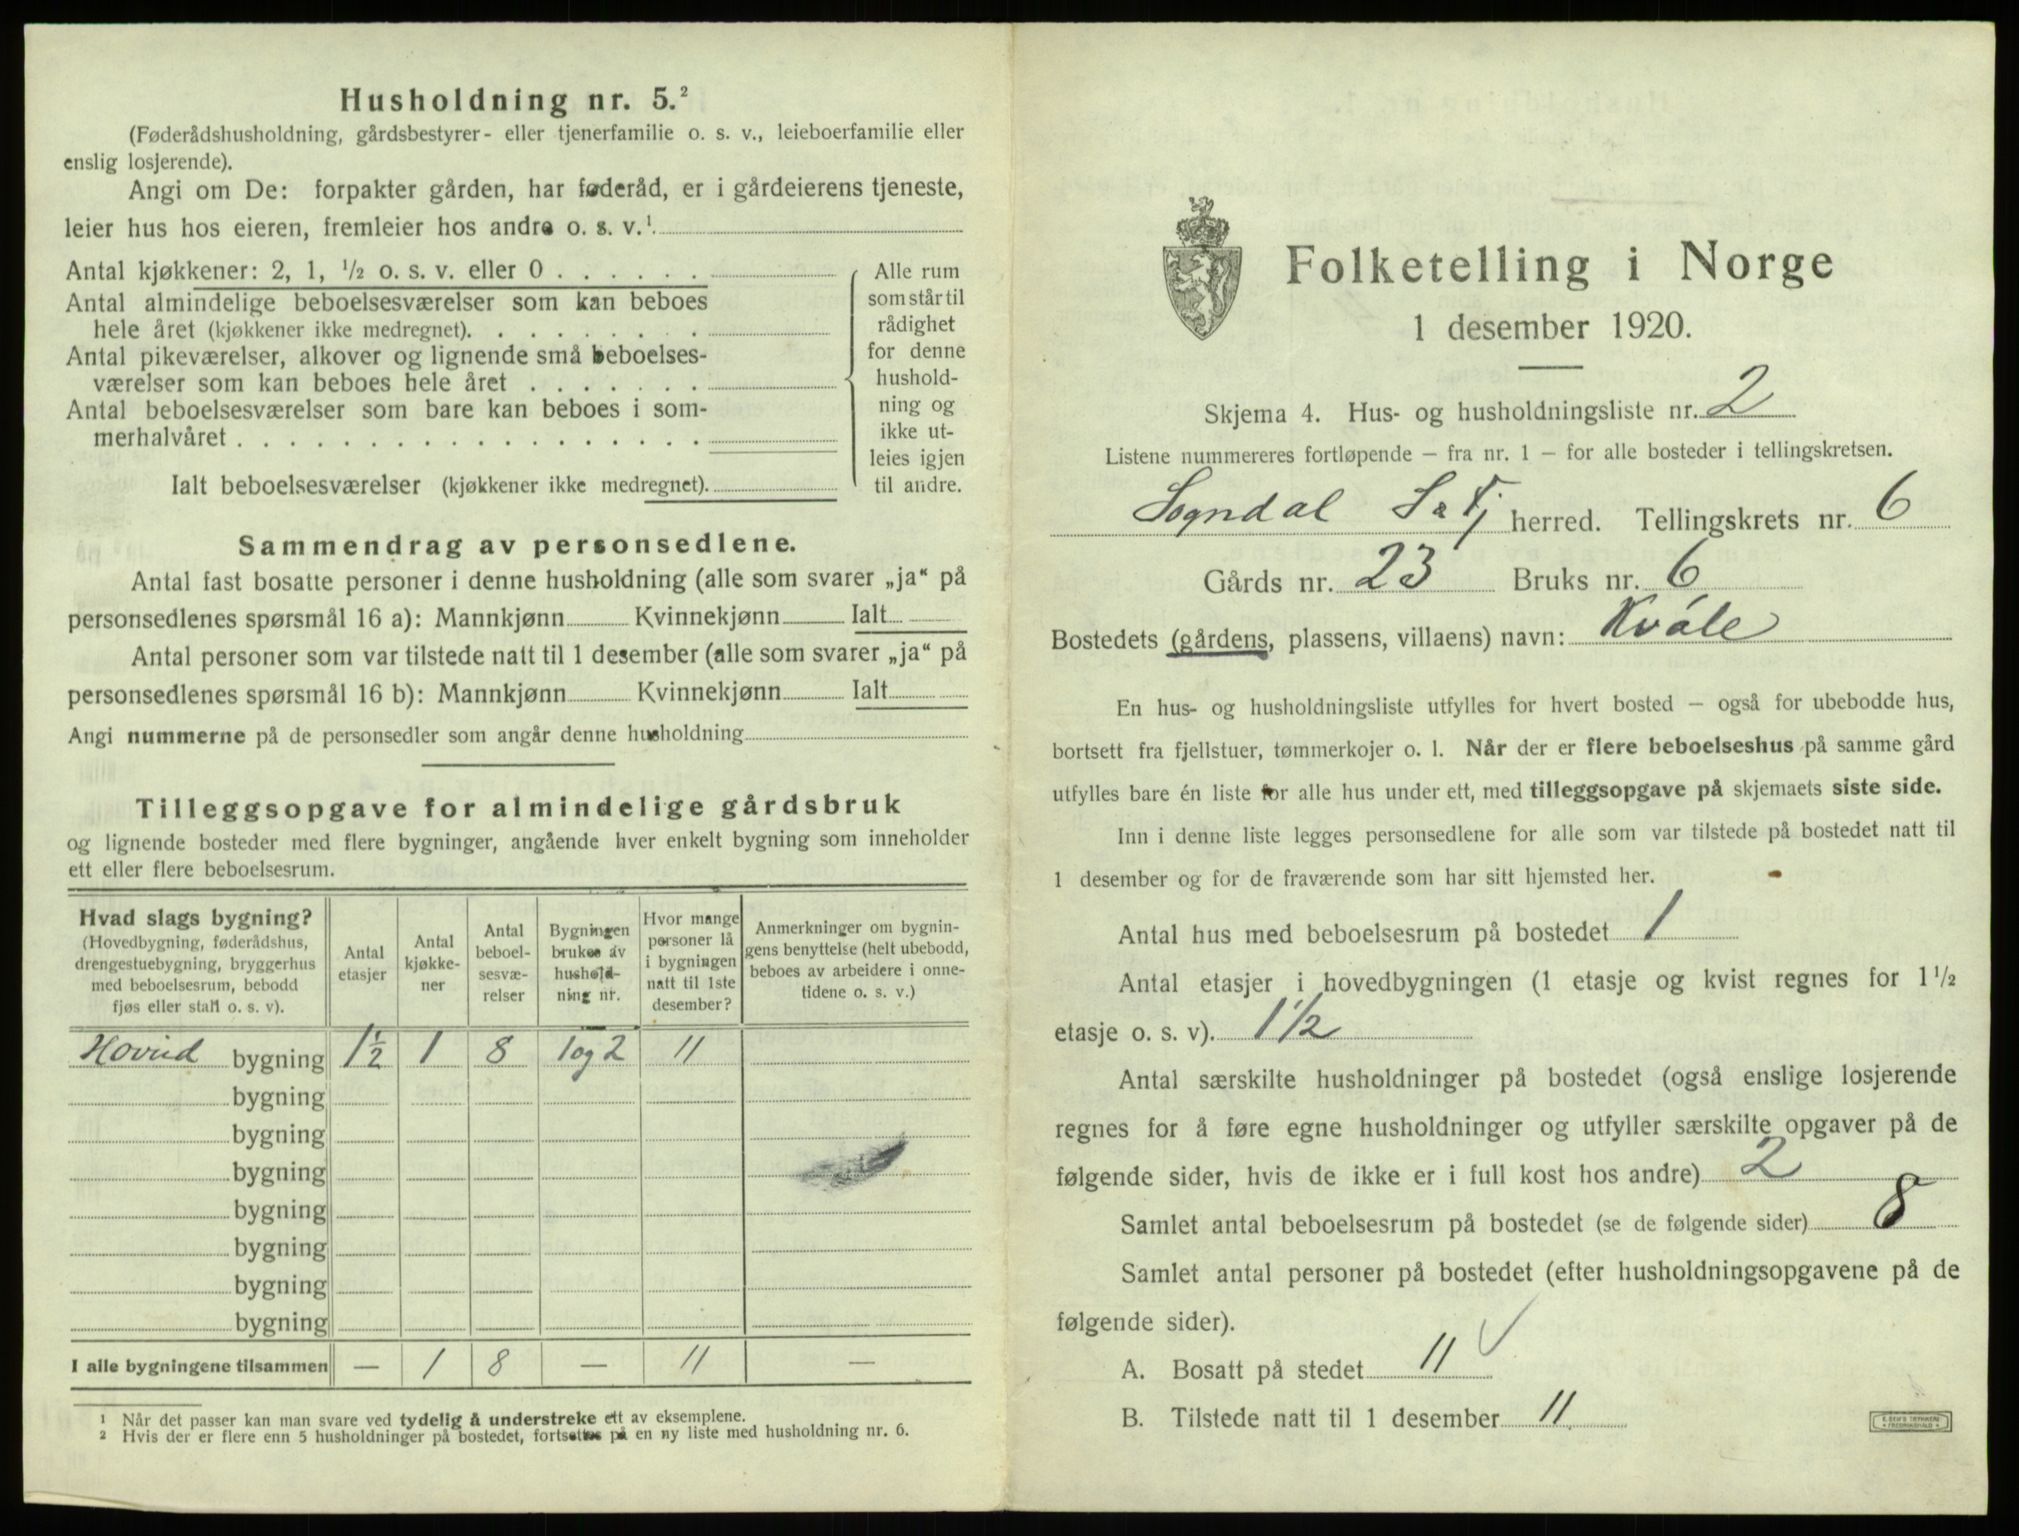 Husholdning nr. 5.²
(Føderådshusholdning, gårdsbestyrer- eller tjenerfamilie o. s. v., leieboerfamilie eller
enslig losjerende).
Angi om De: forpakter gården, har føderåd, er i gårdeierens tjeneste,
leier hus hos eieren, fremleier hos andre o. s. v.¹
Antal kjøkkener: 2, 1, ½ o. s. v. eller 0 . . . . . .
Antal almindelige beboelsesværelser som kan beboes
hele året (kjøkkener ikke medregnet). . . . . . . . .
Antal pikeværelser, alkover og lignende små beboelses-
værelser som kan beboes hele året . . . . . . .
Antal beboelsesværelser som bare kan beboes i som-
merhalvåret . . . . . . . . . . . . . . . . . .
Ialt beboelsesværelser (kjøkkener ikke medregnet).
Alle rum
som står til
rådighet
for denne
hushold-
ning og
ikke ut-
leies igjen
til andre.
Sammendrag av personsedlene.
Antal fast bosatte personer i denne husholdning (alle som svarer „ja“ på
personsedlenes spørsmål 16 a): Mannkjønn Kvinnekjønn Ialt
Antal personer som var tilstede natt til 1 desember (alle som svarer „ja“ på
personsedlenes spørsmål 16 b): Mannkjønn Kvinnekjønn Ialt
Angi nummerne på de personsedler som angår denne husholdning
Tilleggsopgave for almindelige gårdsbruk
og lignende bosteder med flere bygninger, angående hver enkelt bygning som inneholder
ett eller flere beboelsesrum.
Hvad slags bygning?
(Hovedbygning, føderådshus,
drengestuebygning, bryggerhus
med beboelsesrum, bebodd
fjøs eller stall o. s. v).
Antal
etasjer
Antal
kjøkke-
ner
Antal
beboel-
sesvæ-
relser
Bygningen
brukes av
hushold-
ning nr.
Hvor mange
personer lå
i bygningen
natt til 1ste
desember?
Anmerkninger om bygnin-
gens benyttelse (helt ubebodd,
beboes av arbeidere i onne-
tidene o. s. v.)
Hovud bygning 1½ 1 8 1 og 2 11
bygning
bygning
bygning
bygning
bygning
bygning
bygning
I alle bygningene tilsammen — 1 8 — 11 —
1 Når det passer kan man svare ved tydelig å understreke ett av eksemplene.
2 Hvis der er flere enn 5 husholdninger på bostedet, fortsettes på en ny liste med husholdning nr. 6.
Folketelling i Norge
1 desember 1920.
Skjema 4. Hus- og husholdningsliste nr. 2
Listene nummereres fortløpende – fra nr. 1 – for alle bosteder i tellingskretsen.
Sogndal S a Fj herred. Tellingskrets nr. 6
Gårds nr. 23 Bruks nr. 6
Bostedets (gårdens, plassens, villaens) navn: Kvåle
En hus- og husholdningsliste utfylles for hvert bosted – også for ubebodde hus,
bortsett fra fjellstuer, tømmerkojer o. l. Når der er flere beboelseshus på samme gård
utfylles bare én liste for alle hus under ett, med tilleggsopgave på skjemaets siste side.
Inn i denne liste legges personsedlene for alle som var tilstede på bostedet natt til
1 desember og for de fraværende som har sitt hjemsted her.
Antal hus med beboelsesrum på bostedet 1
Antal etasjer i hovedbygningen (1 etasje og kvist regnes for 1½
etasje o. s. v). 1½
Antal særskilte husholdninger på bostedet (også enslige losjerende
regnes for å føre egne husholdninger og utfyller særskilte opgaver på de
følgende sider, hvis de ikke er i full kost hos andre) 2
Samlet antal beboelsesrum på bostedet (se de følgende sider) 8
Samlet antal personer på bostedet (efter husholdningsopgavene på de
følgende sider).
A. Bosatt på stedet 11 ✓
B. Tilstede natt til 1 desember 11